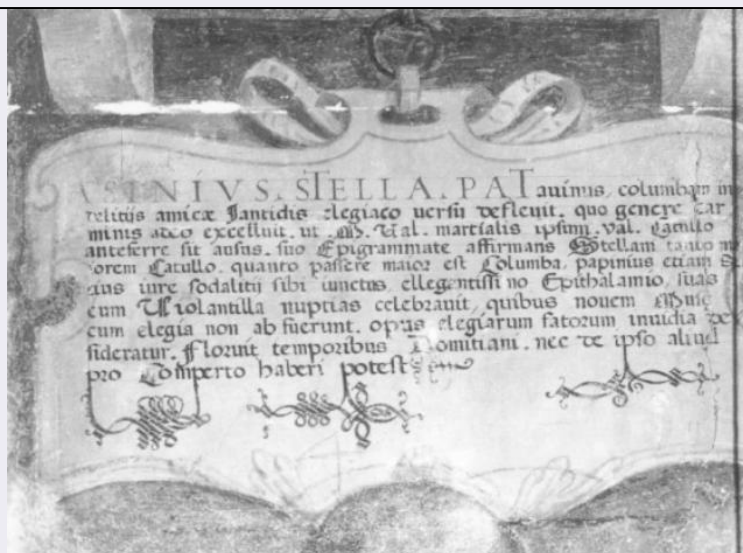 ASINIVS. STELLA. PATavinus, columbam in
relitijs amicæ Jantidis elegiaco uersu defleuit. quo genere car
minis adeo excelluit, ut M. Val. martialis ipsum. val. Catullo
anteferre sit ausus. suo Epigrammate affirmans Stellam tanto ma
iorem Catullo. quanto passere maior est Columba, papinius etiam
ius iure sodalitij sibi iunctus, ellegentissimo Epithalamio, suas
cum Violantilla nuptias celebrauit, quibus nouem Muse
cum elegia non abfuerunt. opus elegiarum fatorum inuidia de
sideratur. Floruit temporibus Domitiani. nec de ipso aliud
pro Comperto haberi potest